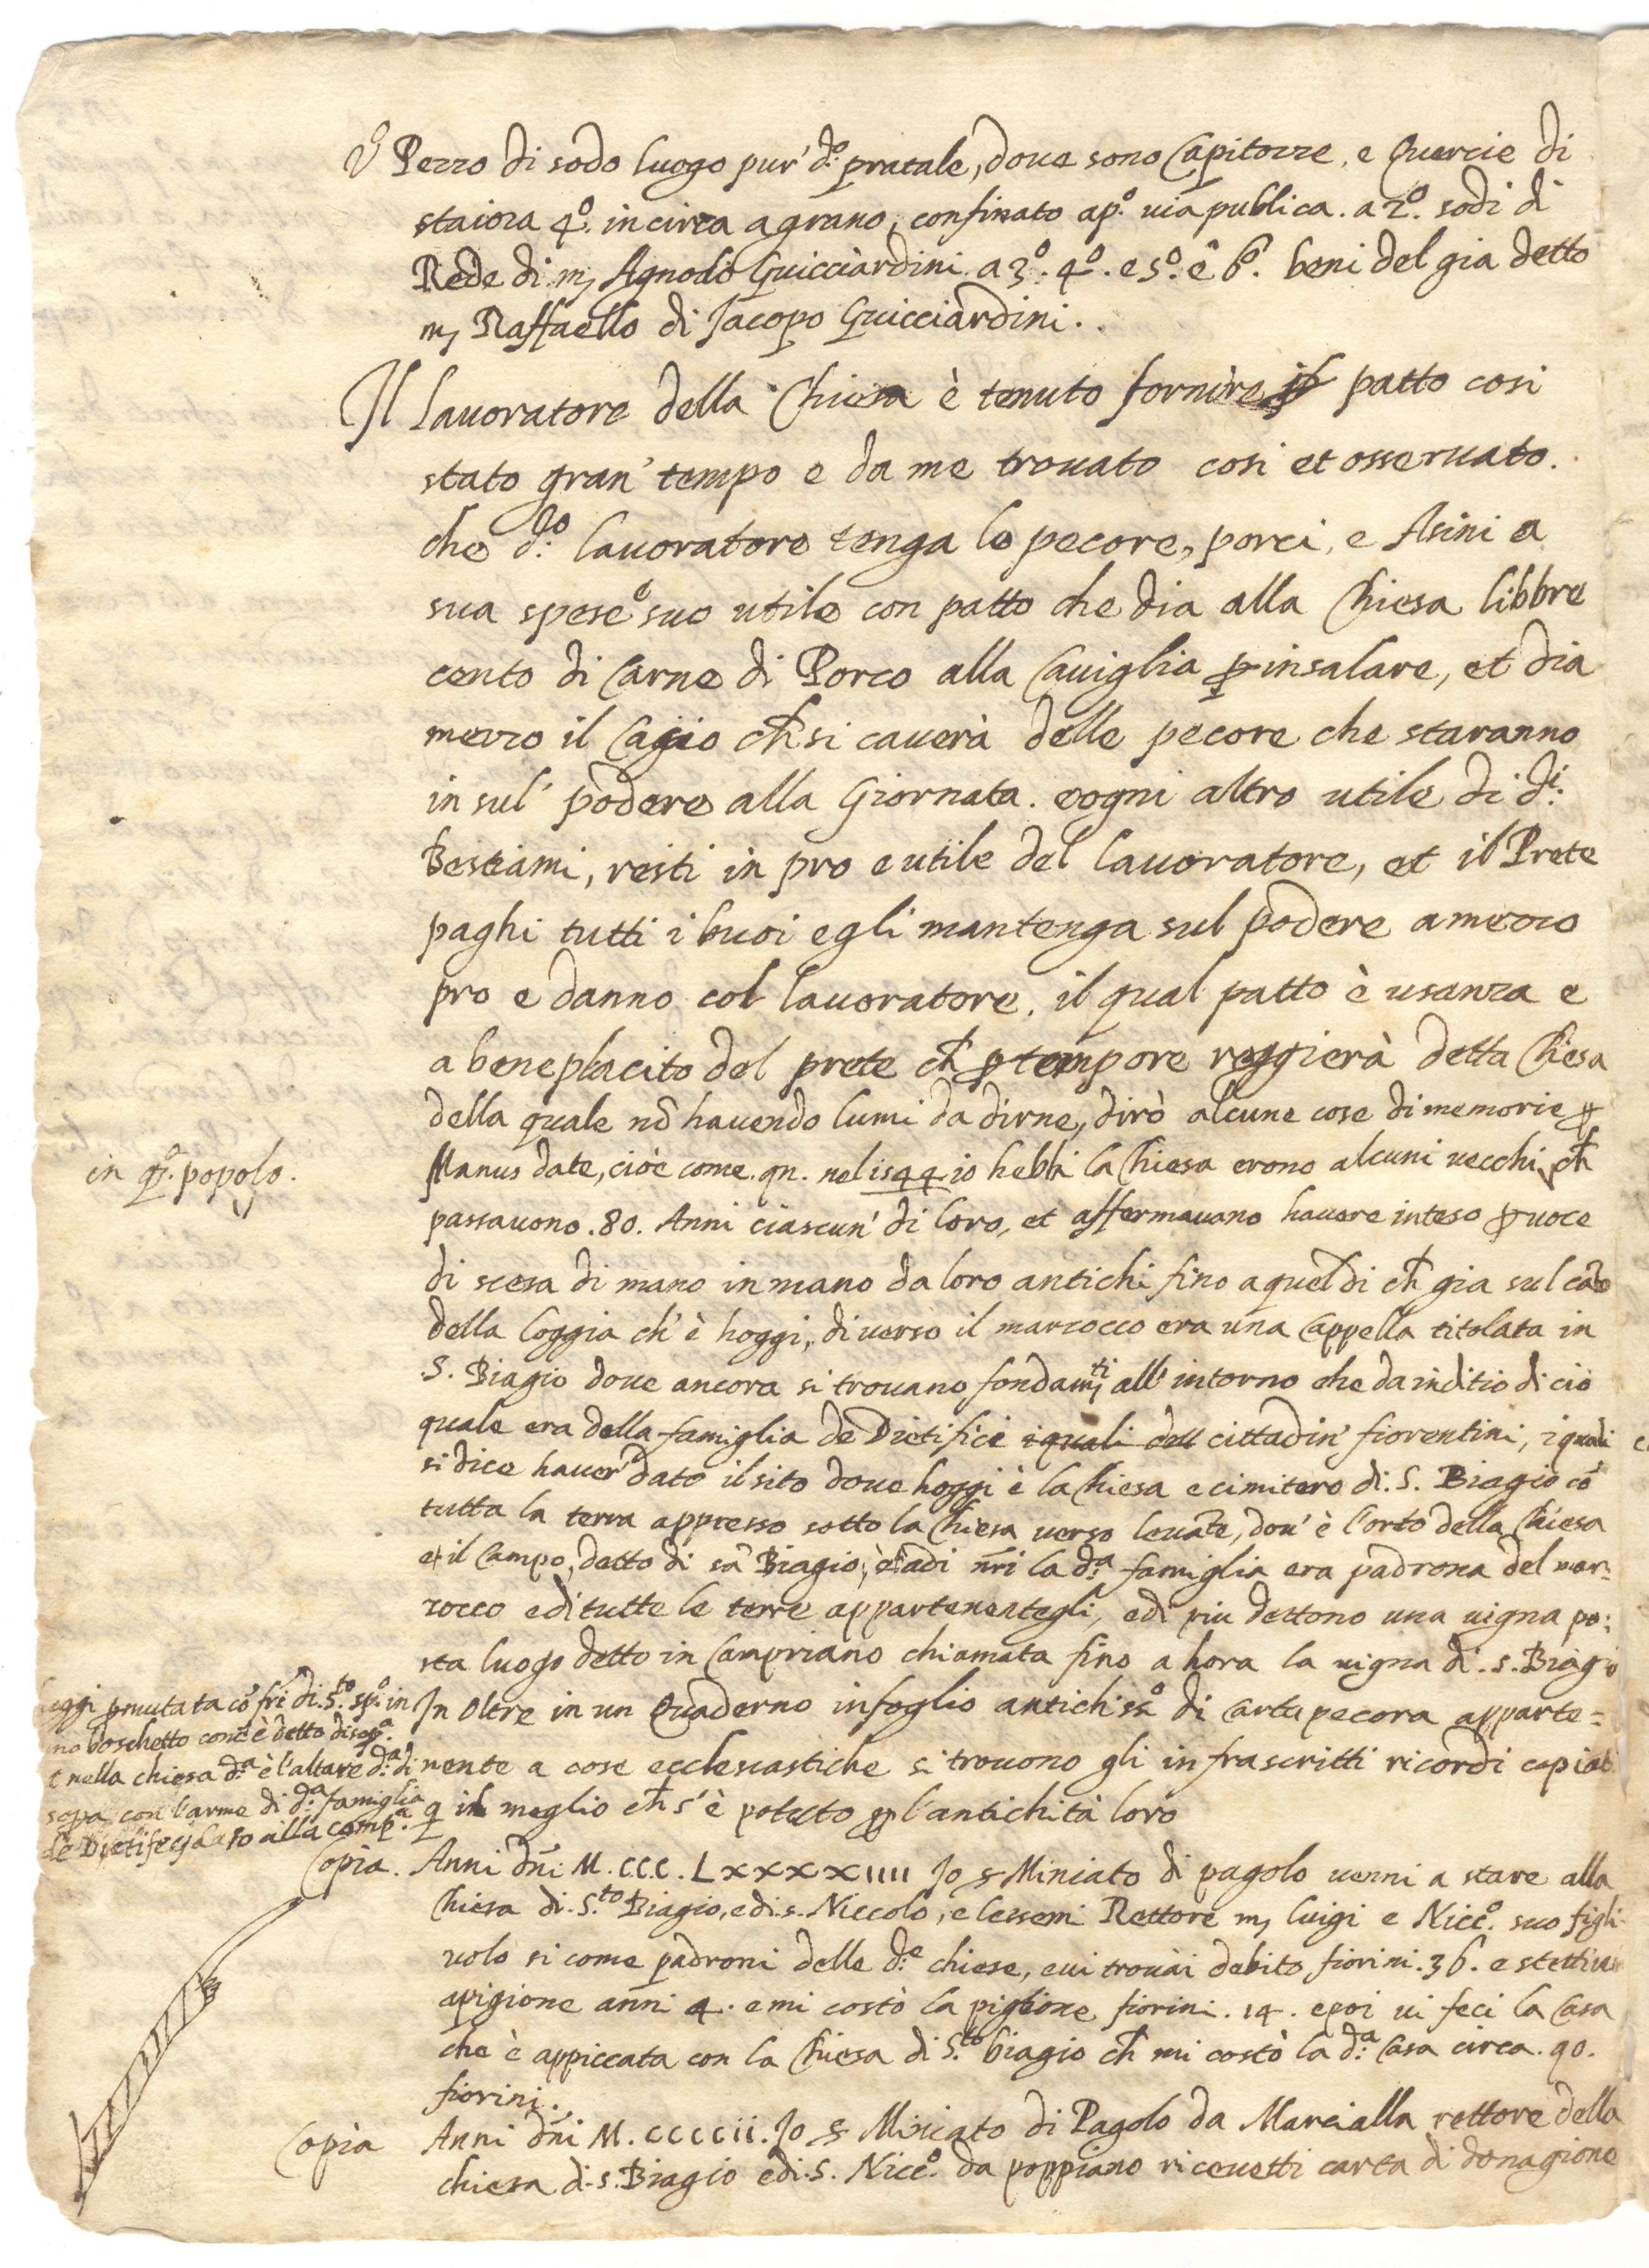 Pezzo di sodo luogo pur' d.º pratale, doue sono Capitozze, e Quercie di
staiora 4.º in circa a grano, confinato a p.º uia publica. a 2.º sodi di
Rede di m; Agnolo Guicciardini. a 3.º 4.º e 5.º e 6.º beni del gia detto
m; Raffaello di Jacopo Guicciardini.
Il lauoratore della Chiesa è tenuto fornire patto cosi
stato gran' tempo e da me trouato cosi et osseruato.
che d.º lauoratore tenga le pecore, porci, e Asini a
sua spese e suo utile con patto che dia alla Chiesa libbre
cento di Carne di Porco alla Cauiglia p insalare, et dia
mezzo il Cacio ch si cauerà delle pecore che staranno
in sul' podere alla Giornata. e ogni altro utile di d.i
Bestiami, resti in pro e utile del lauoratore, et il Prete
paghi tutti i buoi e gli mantenga sul podere a mezzo
pro e danno col lauoratore. il qual patto è usanza e
a beneplacito del prete ch p tempore reggierà detta Chiesa
della quale nõ hauendo lumi da dirne, dirò alcune cose di memorie p
Manus date, cioè come. qn. nel 1544 io hebbi la Chiesa erono alcuni uecchi, ch
in q.º popolo.
passauono .80. Anni ciascun' di loro, et affermauano hauere inteso p uoce
di scesa di mano in mano da loro antichi fino a quel di ch gia sul cãto
della loggia ch' è hoggi, di uerso il marzocco era una Cappella titolata in
.S. Biagio doue ancora si trouano fondam.ti all' intorno che da inditio di ciò
quale era della famiglia de Dietifici i quali dell cittadin' fiorentini, i quali
si dice hauer' dato il sito doue hoggi è la Chiesa e cimitero di. S. Biagio cõ
tutta la terra appresso sotto la Chiesa uerso leuãte, dou' è l'orto della Chiesa
et il Campo, detto di sã Biagio, e a di nri la d.ª famiglia era padrona del mar-
zocco e di tutte le terre appartenentegli, e di piu dettono una uigna po:
sta luogo detto in Campriano chiamata fino a hora la uigna di. s. Biagio
hoggi pmutata cõ fri di. S.to spº. in
uno boschetto come è detto di sopª.
In Oltre in un Quaderno in foglio antichiss.º di Carta pecora apparte=
t nella chiesa d.ª è l'altare d.ª di
nente a cose ecclesiastiche si trouono gli infrascritti ricordi copiati
sopa con l'arme di d.ª famiglia
de Dietifeci dato alla comp.ª
p il meglio ch s' è potuto p l'antichità loro
Copia. Anni dñi M.CCC.LXXXXIIII Jo s Miniato di pagolo uenni a stare alla
Chiesa di. S.to Biagio, e di. s. Niccolo, e lessemi Rettore m; luigi e Nicc.º suo figli-
uolo si come padroni delle d.e chiese, e ui trouai debito fiorini .36. e stettiui
a pigione anni 4. e mi costò la pigione fiorini .14. e poi ui feci la Casa
che è appiccata con la Chiesa di S.to biagio ch mi costò la d.ª Casa circa .90.
fiorini.
Copia Anni dñi M.CCCCii. Jo s Miniato di Pagolo da Marcialla rettore della
chiesa di. s. Biagio e di. S. Nicc.º da poppiano riceuetti carta di donagione